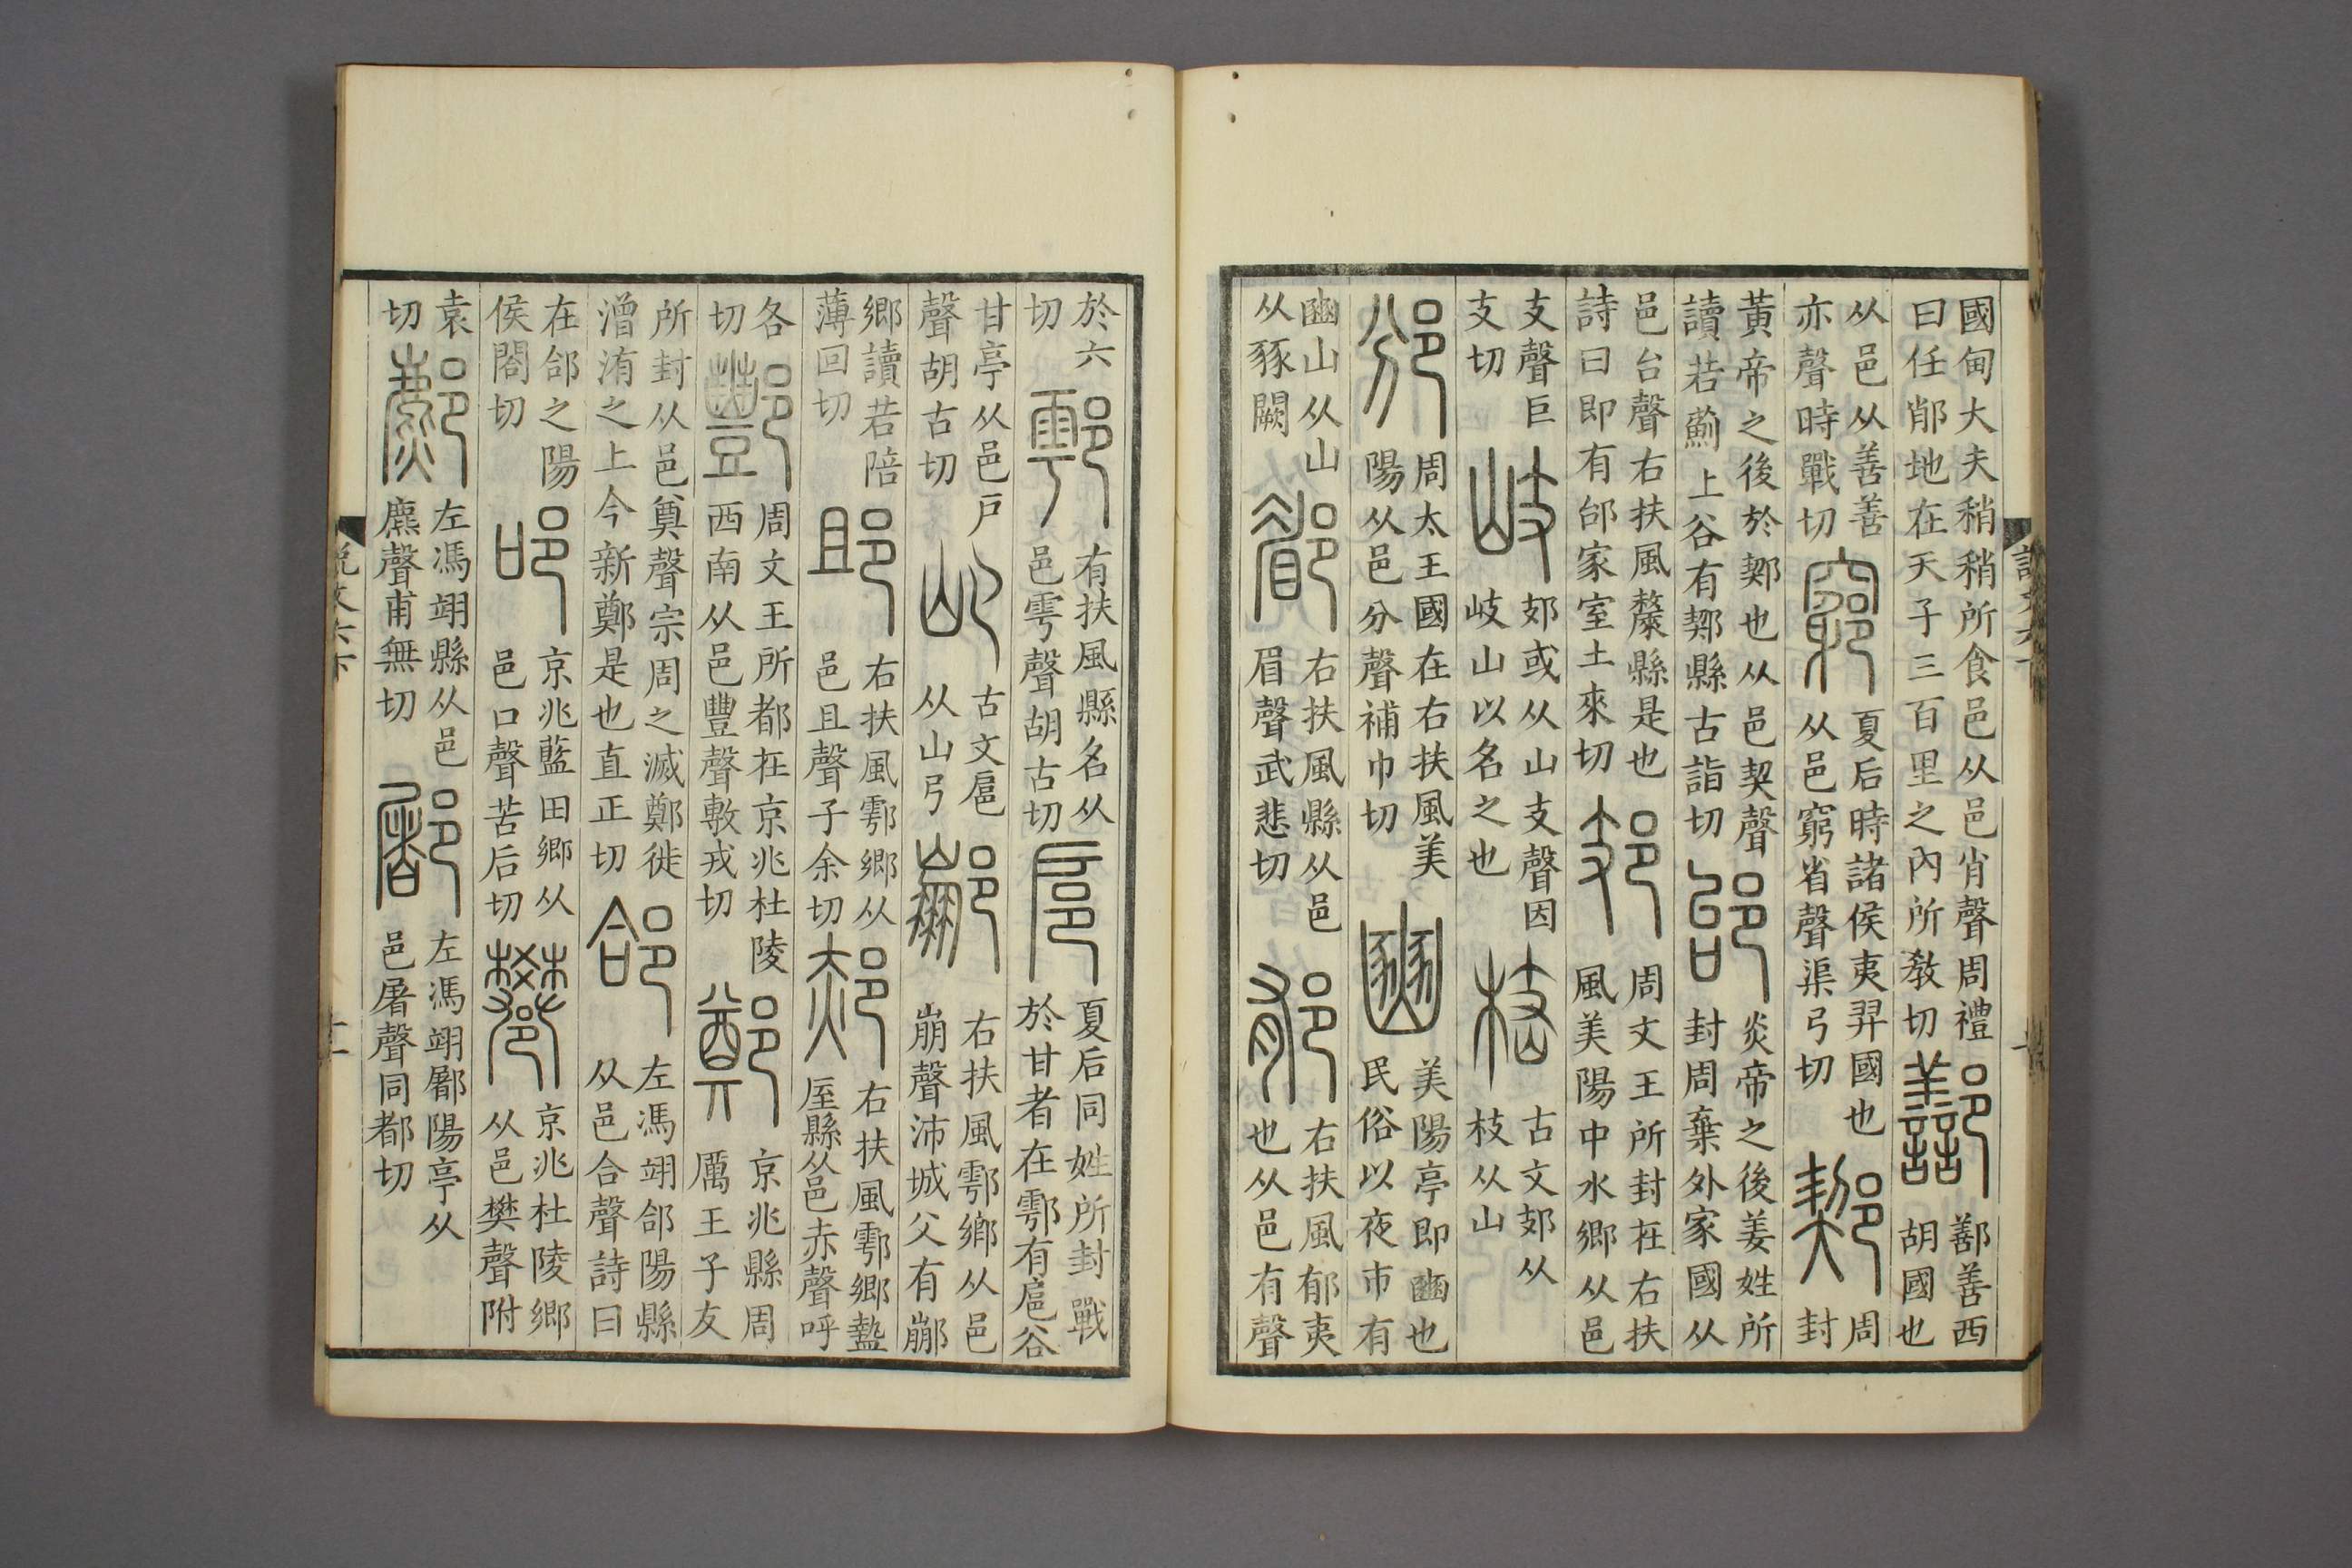 國甸大夫稍稍所食邑从邑肖聲周禮
曰任䣯地在天子三百里之內所教切
鄯
鄯善西
胡國也
从邑从善善
亦聲時戰切
竆
夏后時諸侯夷羿國也
从邑窮省聲渠弓切
𨞬
周
封
黃帝之後於𨞬也从邑契聲
讀若薊上谷有𨞬縣古詣切
邰
炎帝之後姜姓所
封周棄外家國从
邑台聲右扶風斄縣是也
詩曰即有邰家室土來切
𨙸
周文王所封在右扶
風美陽中水鄉从邑
支聲巨
支切
岐
𨙸或从山支聲因
岐山以名之也
古文𨙸从
枝从山
邠
周太王國在右扶風美
陽从邑分聲補巾切
豳
美陽亭即豳也
民俗以夜市有
豳山从山
从豩闕
郿
右扶風縣从邑
眉聲武悲切
郁
右扶風郁夷
也从邑有聲
於六
切
鄠
有扶風縣名从
邑雩聲胡古切
扈
夏后同姓所封戰
於甘者在鄠有扈谷
甘亭从邑戶
聲胡古切
古文扈
从山弓
䣙
右扶風鄠鄉从邑
崩聲沛城父有䣙
鄉讀若陪
薄回切
䢸
右扶風鄠鄉从
邑且聲子余切
郝
右扶風鄠鄉盩
厔縣从邑赤聲呼
各
切
酆
周文王所都在京兆杜陵
西南从邑豐聲敷戎切
鄭
京兆縣周
厲王子友
所封从邑奠聲宗周之滅鄭徙
潧洧之上今新鄭是也直正切
郃
左馮翊郃陽縣
从邑合聲詩曰
在郃之陽
侯閤切
𨙫
京兆藍田鄉从
邑口聲苦后切
𨞪
京兆杜陵鄉
从邑樊聲附
袁
切
鄜
左馮翊縣从邑
麃聲甫無切
䣝
左馮翊䣝陽亭从
邑屠聲同都切
說文六下
十一